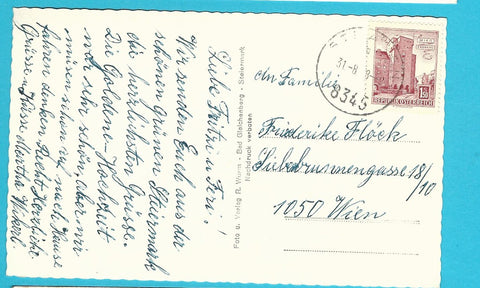 Liebe Fritzi u Feri!
Wir senden Euch aus der
schönen Grünen Steiermark
die herzlichsten Grüsse.
Die Goldene-Hochzeit
war sehr schön, aber wir
müssen schon auf nach Hause
fahren denken. Recht Herzliche
Grüsse u Küsse Martha
Foto u. Verlag R. Wurm - Bad Gleichenberg - Steiermark
Nachdruck verboten
31-8
8345
REPUBLIK ÖSTERREICH
An Familie
Friederike Flöck
Siebenbrunnengasse 18/
10
1050 Wien